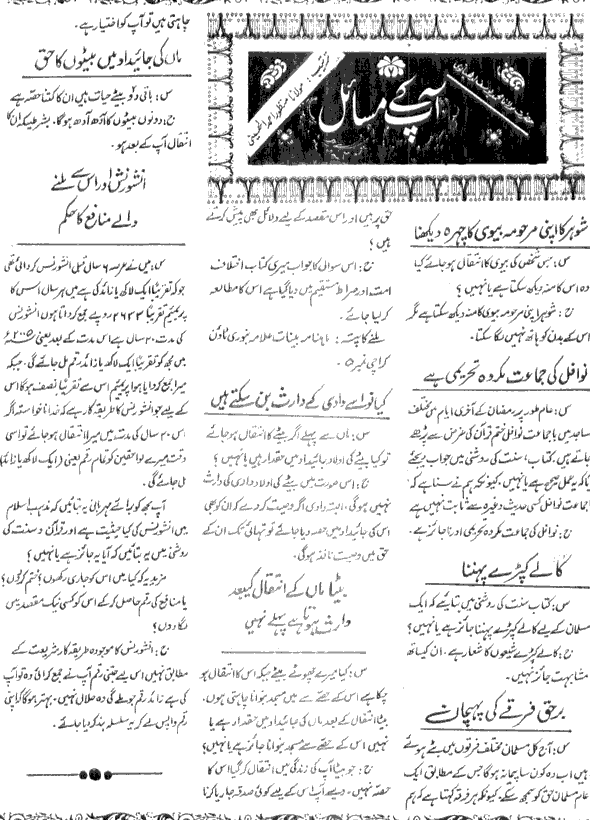 آپ کے مسائل
ترتیب: مولانا منظور احمد الحسینی
شوہر کا اپنی مرحومہ بیوی کا چہرہ دیکھنا
س: جس شخص کی بیوی کا انتقال ہو جائے کیا
وہ اس کا منہ دیکھ سکتا ہے یا نہیں؟
ج: شوہر اپنی مرحومہ بیوی کا منہ دیکھ سکتا ہے مگر
اس کے بدن کو ہاتھ نہیں لگا سکتا۔
نوافل کی جماعت مکروہ تحریمی ہے
س: عام طور پر رمضان کے آخری ایام میں مختلف
مساجد میں با جماعت نوافل ختم قرآن کی غرض سے پڑھے
جاتے ہیں، کتاب، سنت کی روشنی میں جواب دیجئے
کہ یہ عمل صحیح ہے یا نہیں، کیونکہ ہم نے سنا ہے کہ
با جماعت نوافل کسی حدیث وغیرہ سے ثابت نہیں ہے
ج: نوافل کی جماعت مکروہ تحریمی اور ناجائز ہے۔
کالے کپڑے پہننا
س: کتاب سنت کی روشنی میں بتایئے کہ ایک
مسلمان کے لیے کالے کپڑے پہننا جائز ہے یا نہیں؟
ج: کالے کپڑے شیعوں کا شعار ہے، ان کیساتھ
مشابہت جائز نہیں۔
برحق فرقے کی پہچان
س: آج کل مسلمان مختلف فرقوں میں بٹے ہوئے
ہیں اب وہ کون سا پیمانہ ہو گا جس کے مطابق ایک
عام مسلمان حق کو سمجھ سکے، کیونکہ ہر فرقہ کہتا ہے کہ ہم
حق پر ہیں اور اس مقصد کے لیے دلائل بھی پیش کرتے
ہیں؟
ج: اس سوال کا جواب میری کتاب اختلاف
امت اور صراط مستقیم میں دیا گیا ہے اس کا مطالعہ
کر لیا جائے۔
ملنے کا پتہ: ماہنامہ بینات علامہ بنوری ٹاؤن
کراچی نمبر ۵
کیا نواسے دادی کے وارث بن سکتے ہیں
س: ماں سے پہلے اگر بیٹے کا انتقال ہو جائے
تو کیا بیٹے کی اولاد جائیداد میں حقدار ہے یا نہیں؟
ج: اس صورت میں بیٹے کی اولاد دادی کی وارث
نہیں ہوگی، البتہ دادی اگر وصیت کر دے کہ ان کو بھی
اس کی جائیداد میں حصہ دیا جائے تو تہائی تک ان کے
حق میں وصیت نافذ ہوگی۔
بیٹا ماں کے انتقال کے بعد
وارث ہوتا ہے پہلے نہیں
س: کیا میرے چھوٹے بیٹے جبکہ اس کا انتقال ہو
چکا ہے اس کے حصے سے میں مسجد بنوانا چاہتی ہوں،
بیٹا انتقال کے بعد ماں کی جائیداد میں حقدار ہے یا
نہیں اس کے حصے سے مسجد بنوانا جائز ہے یا نہیں؟
ج: جو بیٹا آپ کی زندگی میں انتقال کر گیا اس کا
حصہ نہیں۔ ویسے آپ اس کے لیے کوئی صدقہ جاریہ کرنا
چاہتی ہیں تو آپ کو اختیار ہے۔
ماں کی جائیداد میں بیٹوں کا حق
س: باقی دو بیٹے حیات ہیں ان کا کتنا حصہ ہے
ج: دونوں بیٹوں کا آدھ آدھ ہوگا۔ بشرطیکہ ان کا
انتقال آپ کے بعد ہو۔
انشورنس اور اس سے ملنے
والے منافع کا حکم
س: میں نے عرصہ ۶ سال قبل انشورنس کروائی تھی
جو کہ تقریباً ایک لاکھ یا زائد کی ہے میں ہر سال اس کا
پریمیئم تقریباً ۲۶۳۳ روپے جمع کرواتا ہوں انشورنس
کی مدت ۲۰ سال ہے اس مدت کے بعد یعنی ۲۰۰۵ء
میں مجھ کو تقریباً ایک لاکھ یا زائد رقم مل جائے گی۔ جبکہ
میرا جمع کردایا ہوا پریمیئم اس سے تقریباً نصف ہوگا اس
کے لیے جو انشورنس کا طریقہ کار ہے کہ خدانخواستہ اگر
اس ۲۰ سال کی مدت میں میرا انتقال ہو جائے تو اسی
وقت میرے لواحقین کو تمام رقم یعنی (ایک لاکھ یا زائد)
مل جائے گی۔
آپ مجھ کو برائے مہربانی یہ بتائیں کہ مذہب اسلام
میں انشورنس کی کیا حیثیت ہے اور قرآن و سنت کی
روشنی میں یہ بتائیں کہ آیا یہ جائز ہے یا نہیں؟
مزید یہ کہ کیا میں اس کو جاری رکھوں؟ ختم کردوں؟
یا منافع کی رقم حاصل کر کے اس کو کسی نیک مقصد میں
لگا دوں؟
ج: انشورنس کا موجودہ طریقہ کار شریعت کے
مطابق نہیں اس لیے جتنی رقم آپ نے جمع کرائی وہ تو آپ
کی ہے زائد رقم جو ملے گی وہ حلال نہیں۔ بہتر ہوگا کہ اپنی
رقم واپس لے کر یہ سلسلہ بند کر دیا جائے۔